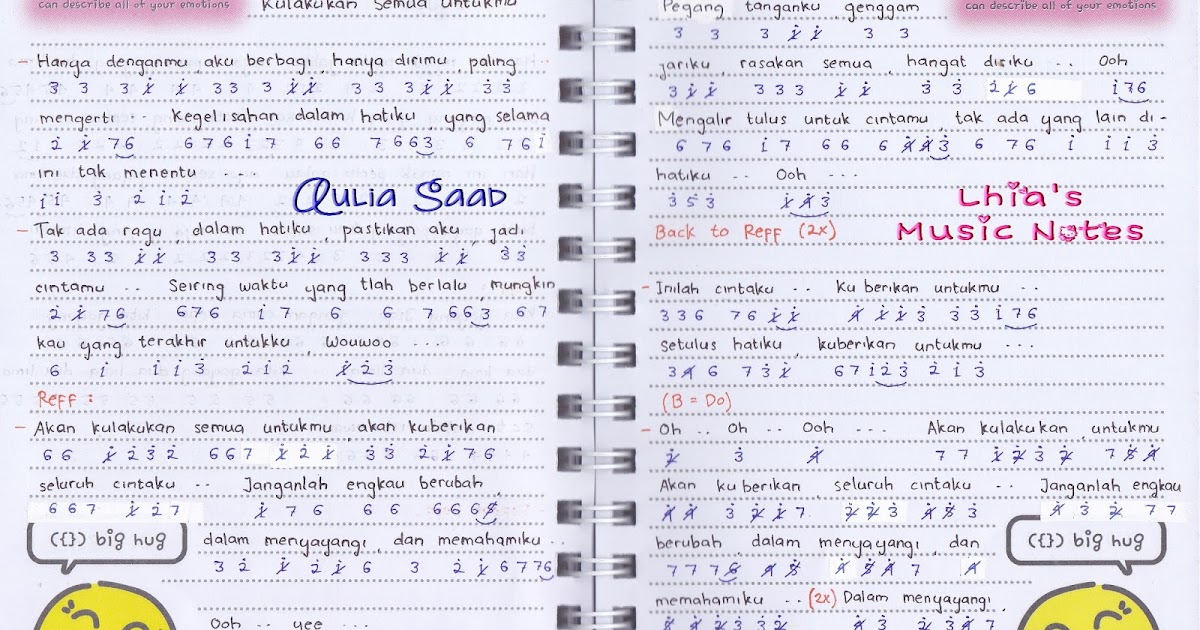 can describe all of your emotions
Kulakukan semua untukmu
- Hanya denganmu, aku berbagi, hanya dirimu, paling ..
3 3 3 1 1 3 3 3 1 1 3 3 3 1 1 3 3
mengerti .. Kegelisahan dalam hatiku, yang selama
2 1 7 6 6 7 6 1 7 6 6 7 6 6 3 6 7 6 1
ini tak menentu ...
1 1 3 2 1 2
Qulia Saad
- Tak ada ragu, dalam hatiku, pastikan aku, jadi
3 3 3 1 1 3 3 3 1 1 3 3 3 1 1 3 3
cintamu .. Seiring waktu yang tlah berlalu, mungkin
2 1 7 6 6 7 6 1 7 6 6 7 6 6 3 6 7
kau yang terakhir untukku, wouwoo ...
6 1 1 1 3 2 1 2 1 2 3
Reff :
- Akan kulakukan semua untukmu, akan kuberikan
6 6 1 2 3 2 6 6 7 1 2 1 3 3 2 1 7 6
seluruh cintaku .. Janganlah engkau berubah,
6 6 7 1 2 7 1 7 6 6 6 6 6 6 5
({}) big hug
dalam menyayangi, dan memahamiku ..
3 2 1 2 1 6 3 2 1 6 7 7 6
Ooh .. yee ...
Pegang tanganku, genggam
3 3 3 1 1 3 3
can describe all of your emotions
jariku, rasakan semua, hangat diriku .. Ooh
3 1 1 3 3 3 1 1 3 3 2 1 6 1 7 6
Mengalir tulus untuk cintamu, tak ada yang lain di-
6 7 6 1 7 6 6 6 4 4 3 6 7 6 1 1 1 3
hatiku .. Ooh ...
3 5 3 1 4 3
Lhia's
Music Notes
Back to Reff (2x)
- Inilah cintaku .. Ku berikan untukmu ..
3 3 6 7 6 1 1 4 1 1 3 3 3 1 7 6
setulus hatiku, kuberikan untukmu ...
3 4 6 7 3 1 6 7 1 2 3 2 1 3
(B = Do)
- Oh .. Oh .. Ooh ... Akan kulakukan, untukmu
2 3 4 7 7 1 2 3 2 7 5 4
Akan ku berikan, seluruh cintaku .. Janganlah engkau
4 4 3 2 1 7 2 2 3 4 5 3 4 3 2 7 7
berubah, dalam menyayangi, dan
7 7 7 6 4 5 4 5 4 7 4
({}) big hug
memahamiku .. (2x) Dalam menyayangi,